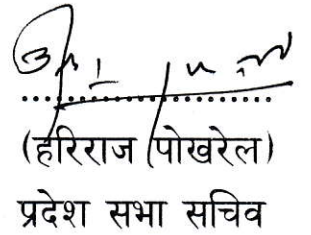 (हरिराज पोखरेल)
प्रदेश सभा सचिव